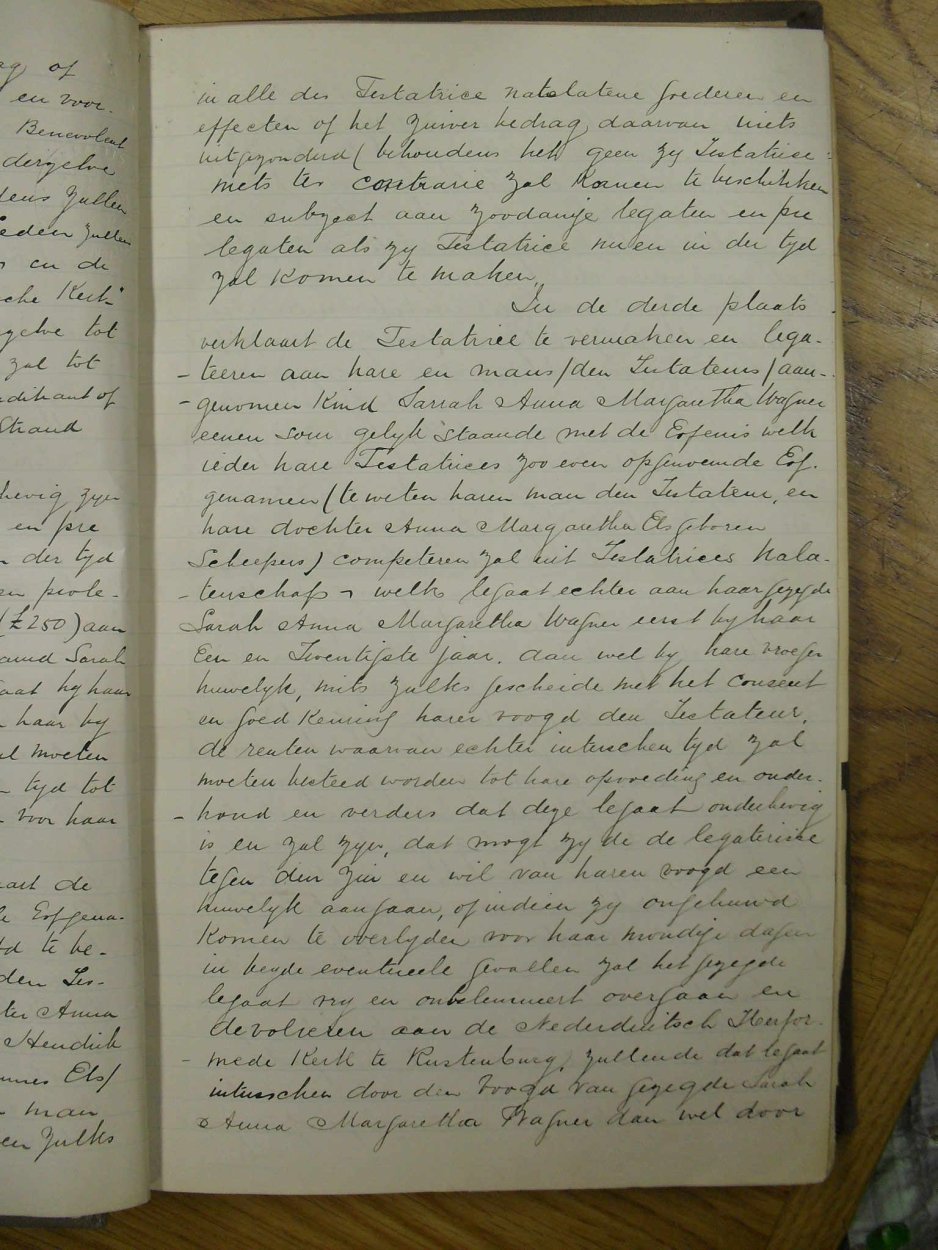 ag of
en voor-
Benevolent
derzelve
dens zullen
leden zullen
en de
sche Kerk"
zelve tot
zal tot
edikant of
Strand
hevig zyn
en pre
n der tyd
en prole-
(£250) aan
amd Sarah
aat by haar
n haar by
al moeten
n tyd tot
voor haar
aart de
le Erfgena-
td te be-
den Tes-
ter Anna
Hendrik
nnes Els/
n man
een zulks
in alle des Testatrice natelatene goederen en
effecten of het zuiver bedrag daarvan niets
uitgezonderd (behoudens het geen zy Testatrise
mets ter contrarie zal komen te beschikken
en subject aan zoodanige legaten en pre
legaten als zy Testatrice nu en in der tyd
zal komen te maken,,
In de derde plaats
verklaart de Testatrice te vermaken en lega-
- teeren aan hare en mans /den Testateurs/ aan-
- genomen Kind Sarrah Anna Margaretha Wagner
eenen som gelyk staande met de Erfenis welk
ieder hare Testatrices zoo even opgenoemde Erf.
genamen (te weten haren man den Testateur, en
hare dochter Anna Margaretha Els geboren
Scheepers) competeren zal uit Testatrices Nala-
- tenschap - welks legaat echter aan haar gezegde
Sarah Anna Margaretha Wagner eerst by haar
Een en Twentigste jaar. dan wel by hare vroeger
huwelyk, mits zulks gescheide met het consent
en goed Kenring harer voogd den Testateur,
de renten waarvan echter interschen tyd zal
moeten besteed worden tot hare opvoeding en onder-
- houd en verders dat deze legaat onderhevig
is en zal zyn, dat mogt zy de de legaterisse
tegen den zin en wil van haren voogd een
huwelyk aangaan, of indien zy ongehuwd
Komen te overlyden voor haar mondige dagen
in beyde eventueele gevallen zal het gezegde
legaat vry en onbelemmert overgaan en
devolveren aan de Nederduitsch Herfor-
- mede Kerk te Rustenburg, zullende dat legaat
interschen door den voogd van gezegde Sarah
Anna Margaretha Wagner dan wel door